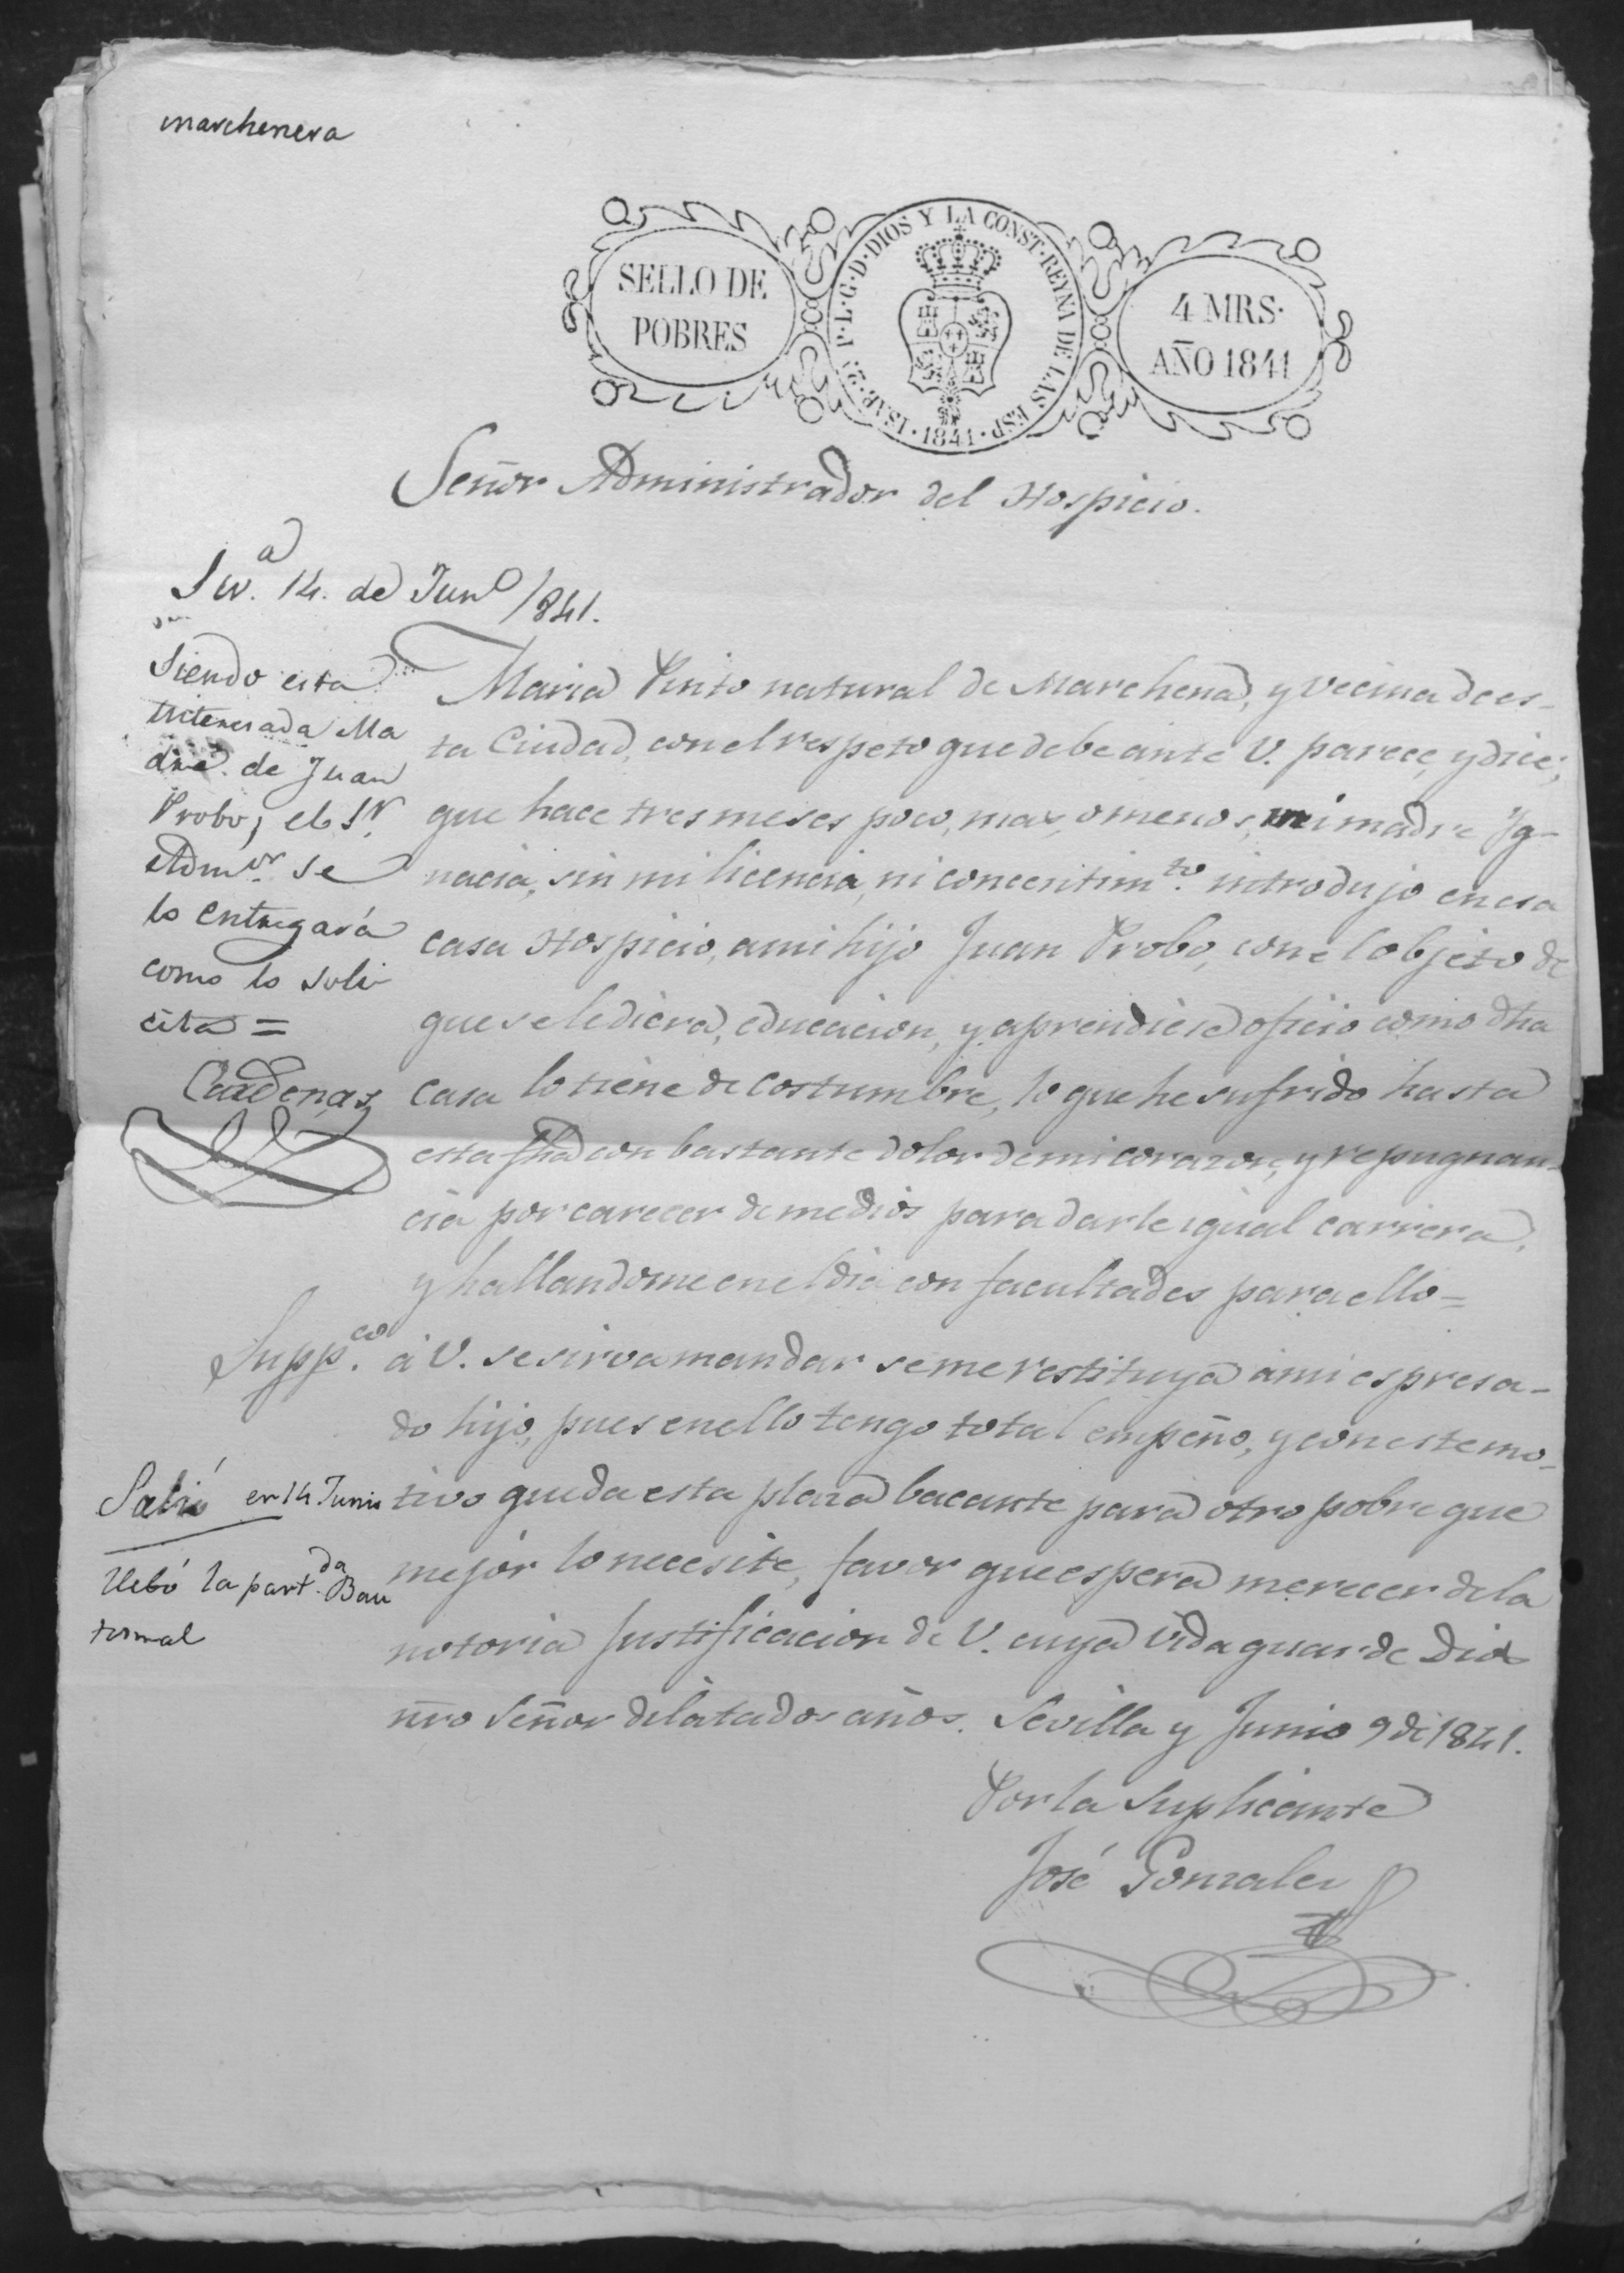 marchenera
SELLO DE
POBRES
ISAB. 2ª P. L. G. D. DIOS Y LA CONST. REYNA DE LAS ESP. 1841
4 MRS.
AÑO 1841
Señor Administrador del Hospicio.
Sevª. 14. de Junº /841.
Siendo esta
interesada Ma
dre de Juan
Probo, el Sr.
Admor. se
lo entregará
como lo soli
cita =
Cardenas
Maria Pinto natural de Marchena, y vecina de es-
ta Ciudad, con el respeto que debe ante V. parece, y dice;
que hace tres meses poco, mas, o menos, mi madre Yg-
nacia, sin mi licencia, ni concentimto. introdujo en esa
casa Hospicio, a mi hijo Juan Probo, con el objeto de
que se le diera, educacion, y aprendiese oficio como dha
casa lo tiene de costumbre, lo que he sufrido hasta
esta fha con bastante dolor de mi corazon, y repugnan-
cia por carecer de medios para darle igual carrera,
y hallandome en el dia con facultades para ello=
Suppco. á V. se sirva mandar se me restituya á mi espresa-
do hijo, pues en ello tengo total empeño, y con este mo-
tivo queda esta plaza bacante para otro pobre que
mejor lo necesite, favor que espera merecer de la
notoria Justificacion de V. cuya vida guarde Dios
nro Señor dilatados años. Sevilla y Junio 9 de 1841.
Salió en 14 Junio
llebó la partda. Bau
tismal
Por la Suplicante
José Gonzalez